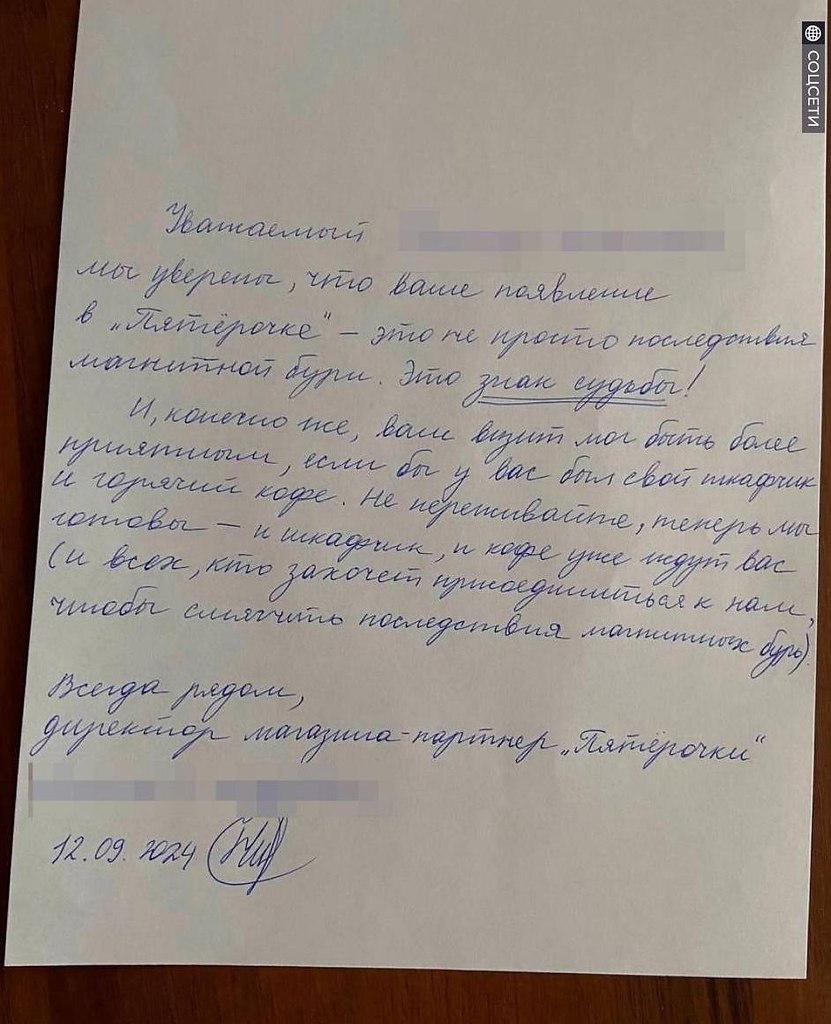 СОЦСЕТИ
Уважаемый
мы уверены, что ваше появление
в „Пятёрочке“ – это не просто последствия
магнитной бури. Это знак судьбы!
И, конечно же, ваш визит мог быть более
приятным, если бы у вас был свой шкафчик
и горячий кофе. Не переживайте, теперь мы
готовы – и шкафчик, и кофе уже ждут вас
(и всех, кто захочет присоединиться к нам,
чтобы смягчить последствия магнитных бурь).
Всегда рядом,
директор магазина-партнер „Пятёрочки“
12.09.2024